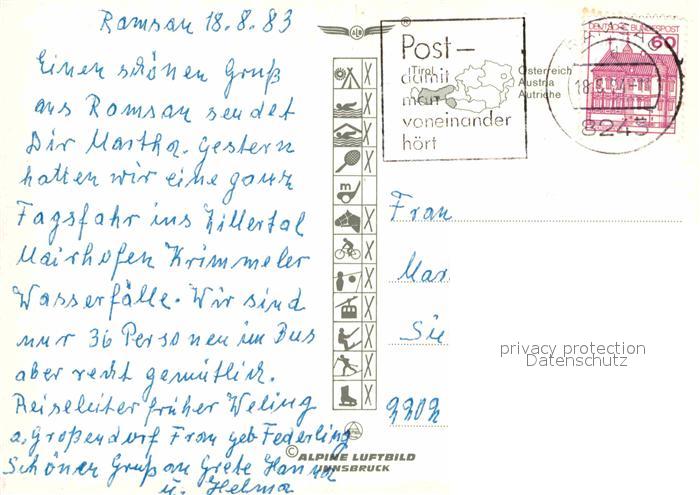 Ramsau 18.8.83
Einen schönen Gruß
aus Ramsau sendet
Dir Martha. Gestern
hatten wir eine ganz
Tagsfahr ins Zillertal
Mairhofen Krimmeler
Wasserfälle. Wir sind
nur 36 Personen im Bus
aber recht gemütlich.
Reiseleiter früher Weling
a, Großendorf Frau geb Federling
Schöner Gruß an Grete Hanna
u. Helma
ALB
®
Post-
damit
man
voneinander
hört
Tirol
Österreich
Austria
Autriche
DEUTSCHE BUNDESPOST
60
8243
m
Frau
Mar
Sie
2202
privacy protection
Datenschutz
© ALPINE LUFTBILD
INNSBRUCK